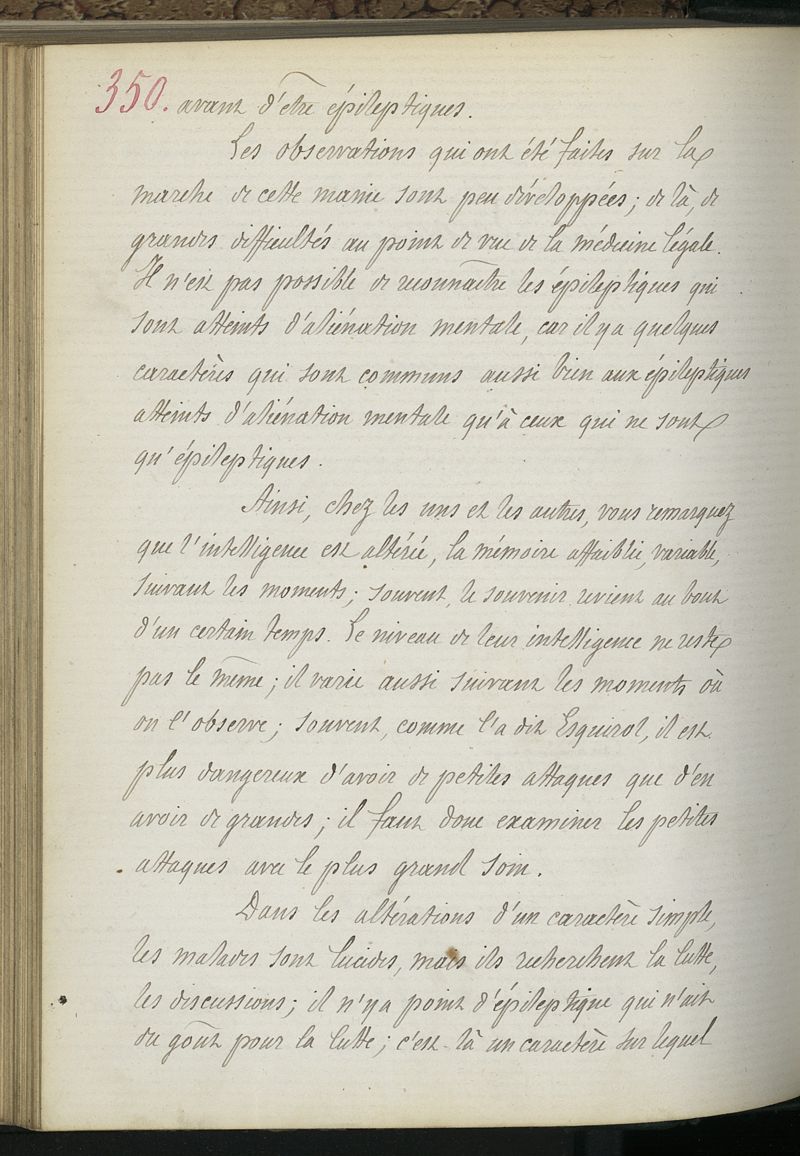 350. avant d'être épileptiques.
Les observations qui ont été faites sur la
marche de cette manie sont peu développées; de là, de
grandes difficultés au point de vue de la médecine légale.
Il n'est pas possible de reconnaître les épileptiques qui
sont atteints d'aliénation mentale, car il y a quelques
caractères qui sont communs aussi bien aux épileptiques
atteints d'aliénation mentale qu'à ceux qui ne sont
qu'épileptiques.
Ainsi, chez les uns et les autres, vous remarquez
que l'intelligence est altérée, la mémoire affaiblie, variable,
suivant les moments; souvent, le souvenir revient au bout
d'un certain temps. Le niveau de leur intelligence ne reste
pas le même; il varie aussi suivant les moments où
on l'observe; souvent, comme l'a dit Esquirol, il est
plus dangereux d'avoir de petites attaques que d'en
avoir de grandes; il faut donc examiner les petites
attaques avec le plus grand soin.
Dans les altérations d'un caractère simple,
les malades sont lucides, mais ils recherchent la lutte,
les discussions; il n'y a point d'épileptique qui n'ait
du goût pour la lutte; c'est là un caractère sur lequel